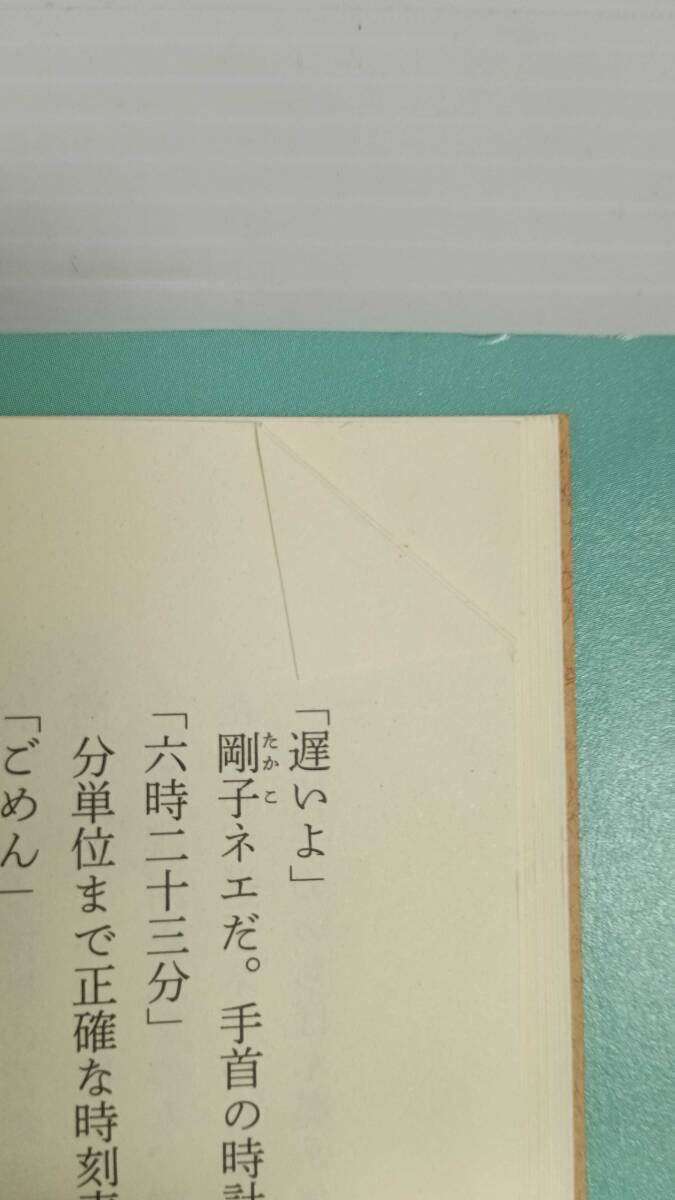 「遅いよ」
剛子ネエだ。手首の時計
「六時二十三分」
分単位まで正確な時刻
「ごめん」